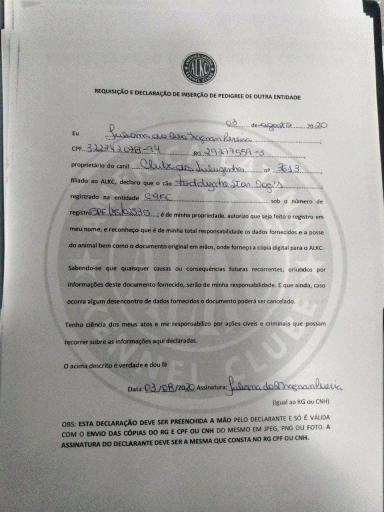 ALKC
REQUISIÇÃO E DECLARAÇÃO DE INSERÇÃO DE PEDIGREE DE OUTRA ENTIDADE
03 de agosto 2020
Eu Juliana
CPF 322742098-94 RG 29277559-3
proprietário do canil Clube dos nº 7613
filiado ao ALKC, declaro que o cão Star Dog's
registrado na entidade sob o número de
registro ; é de minha propriedade, autorizo que seja feito o registro em
meu nome, e reconheço que é de minha total responsabilidade os dados fornecidos e a posse
do animal bem como o documento original em mãos, onde forneço a cópia digital para o ALKC.
Sabendo-se que quaisquer causas ou consequências futuras recorrentes, oriundos por
informações deste documento fornecido, serão de minha responsabilidade. E que ainda, caso
ocorra algum desencontro de dados fornecidos o documento poderá ser cancelado.
Tenho ciência dos meus atos e me responsabilizo por ações cíveis e criminais que possam
recorrer sobre as informações aqui declaradas.
O acima descrito é verdade e dou fé
Data: 03/08/2020 Assinatura: Juliana
(Igual ao RG ou CNH)
OBS: ESTA DECLARAÇÃO DEVE SER PREENCHIDA A MÃO PELO DECLARANTE E SÓ É VÁLIDA
COM O ENVIO DAS CÓPIAS DO RG E CPF OU CNH DO MESMO EM JPEG, PNG OU FOTO. A
ASSINATURA DO DECLARANTE DEVE SER A MESMA QUE CONSTA NO RG CPF OU CNH.